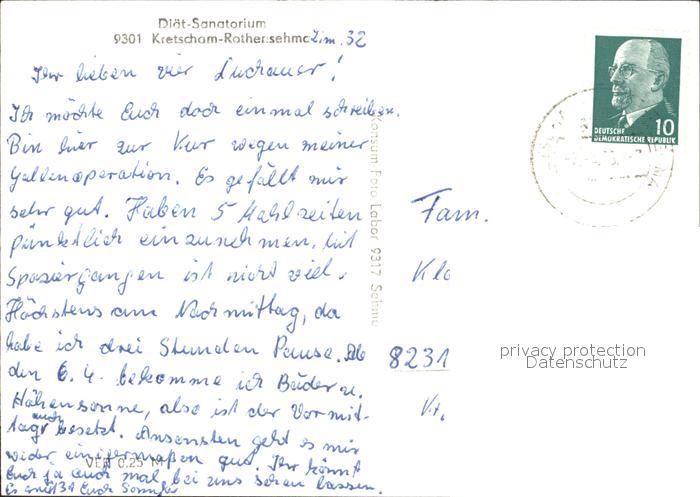 Diät-Sanatorium
9301 Kretscham-Rothensehma Zim. 32
Ihr lieben vier Luckauer!
Ich möchte Euch doch einmal schreiben.
Bin hier zur Kur wegen meiner
Gallenoperation. Es gefällt mir
sehr gut. Haben 5 Mahlzeiten
pünktlich einzunehmen. Mit
Spaziergängen ist nicht viel.
Höchstens am Nachmittag, da
habe ich drei Stunden Pause. Ab
den 6. 4. bekomme ich Bäder u.
Höhensonne, also ist der Vormit-
tag auch besetzt. Ansonsten geht es mir
wieder einigermaßen gut. Ihr könnt
Euch ja auch mal bei uns sehen lassen.
Es grüßt Euch
VEB 0,25 M
Konsum Foto Labor 9317 Sehma
DEUTSCHE
DEMOKRATISCHE REPUBLIK
10
Fam.
Klo
8231
privacy protection
Datenschutz